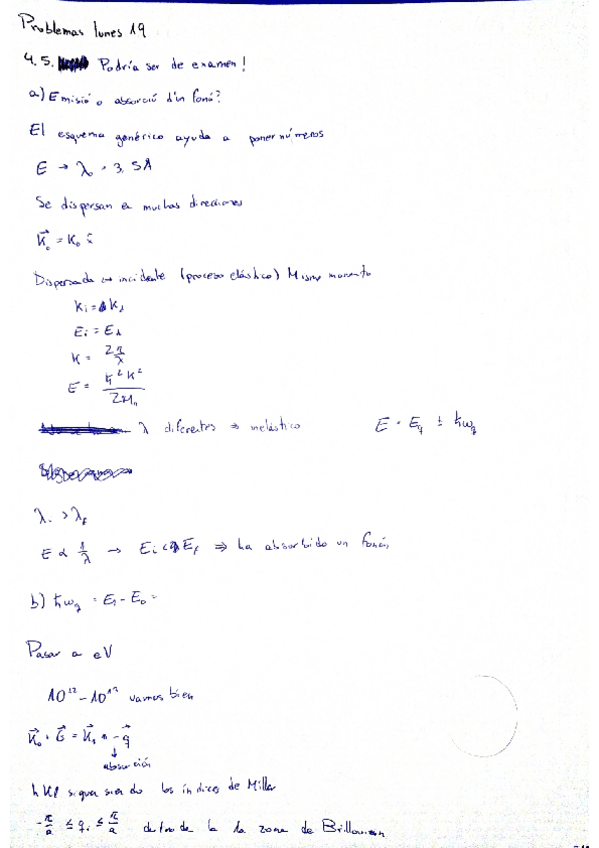 Problemas lunes 19
4.5. Podría ser de examen!
a) Emisió o absorció d'un fonó?
El esquema genérico ayuda a poner números
E → λ₀ = 3,5Å
Se dispersan en muchas direcciones
K⃗₀ = K₀ x̂
Dispersada ↔ incidente (proceso elástico) Mismo momento
Ki = K₁
Ei = E₁
K = 2π/λ
E = ħ²K²/2Mₙ
λ diferentes ⇒ inelástico E = E_q ± ħω_q
λ₀ > λf
E α 1/λ → Ei < Ef ⇒ ha absorbido un fonón
b) ħω_q = E₁ - E₀ =
Pasar a eV
10¹² - 10¹³ vamos bien
K⃗₀ + G⃗ = K⃗₁ - q⃗
↓
absorción
hkl siguen siendo los índices de Miller
-π/a ≤ qᵢ ≤ π/a dentro de la 1a zona de Brillouin